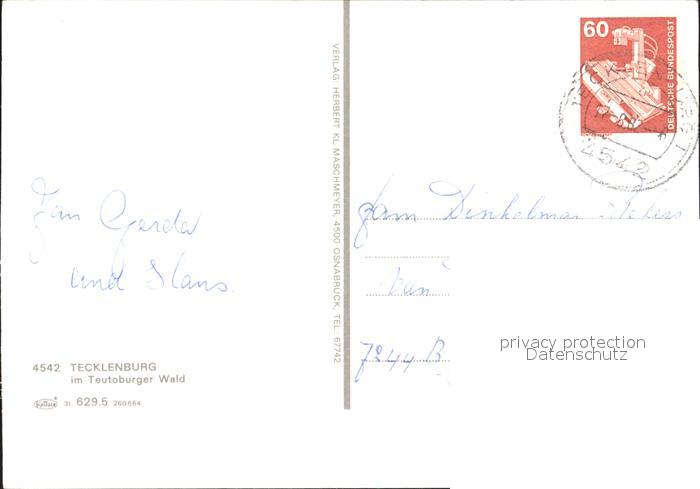 60
DEUTSCHE BUNDESPOST
4542
VERLAG: HERBERT KL. MASCHMEYER, 4500 OSNABRÜCK, TEL. 67742
Gerda
and Hans.
Fam
7244 B
4542 TECKLENBURG
im Teutoburger Wald
31 629.5 260664
privacy protection
Datenschutz